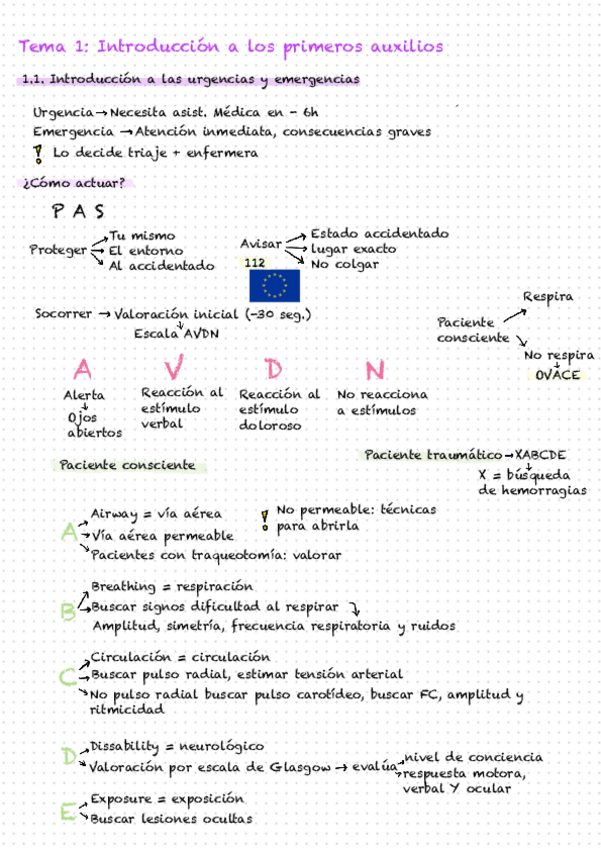 Tema 1: Introducción a los primeros auxilios
1.1. Introducción a las urgencias y emergencias
Urgencia → Necesita asist. Médica en - 6h
Emergencia → Atención inmediata, consecuencias graves
! Lo decide triaje + enfermera
¿Cómo actuar?
P A S
Proteger
Tu mismo
El entorno
Al accidentado
Avisar
112
Estado accidentado
lugar exacto
No colgar
Socorrer → Valoración inicial (-30 seg.)
Escala AVDN
Paciente
consciente
Respira
No respira
OVACE
A
Alerta
Ojos
abiertos
V
Reacción al
estímulo
verbal
D
Reacción al
estímulo
doloroso
N
No reacciona
a estímulos
Paciente consciente
Paciente traumático → XABCDE
X = búsqueda
de hemorragias
A
Airway = vía aérea
Vía aérea permeable
Pacientes con traqueotomía: valorar
! No permeable: técnicas
para abrirla
B
Breathing = respiración
Buscar signos dificultad al respirar
Amplitud, simetría, frecuencia respiratoria y ruidos
C
Circulación = circulación
Buscar pulso radial, estimar tensión arterial
No pulso radial buscar pulso carotídeo, buscar FC, amplitud y
ritmicidad
D
Dissability = neurológico
Valoración por escala de Glasgow → evalúa
nivel de conciencia
respuesta motora,
verbal Y ocular
E
Exposure = exposición
Buscar lesiones ocultas